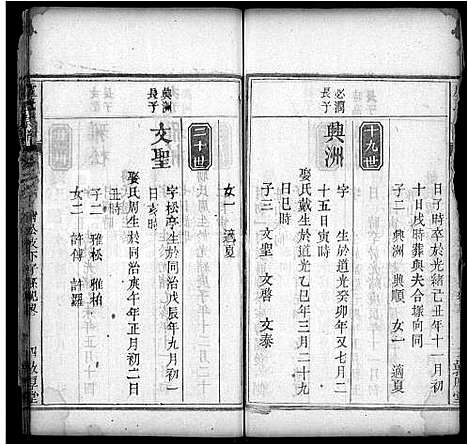 日子時卒於光緒己丑年十一月初
十日戌時葬與夫合塚向同
子二 興洲 興順 女一 適夏
十九世
必潤長子
興洲
字 生於道光癸卯年又七月二
十五日寅時
娶氏戴生於道光乙巳年二月二十九
日巳時
子三 文聖 文膺 文泰
女一 適夏
二十世
興洲長子
文聖
字松亭生於同治戊辰年九月初一
日亥時
娶氏周生於同治庚午年正月初二日
丑時
子二 雅松 雅柏
女二 許傅 許羅
敦厚堂